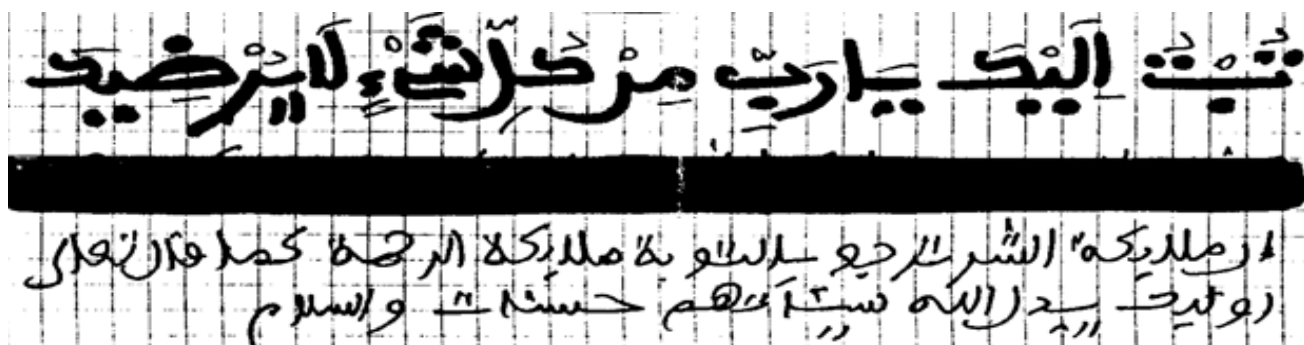 تُبْتُ إِلَيْكَ يَا رَبِّ مِنْ كُلِّ شَيْءٍ لَا يُرْضِيكَ
ان ملايكة الشر ترجع بالتوبة ملايكة الرحمة كما قال تعلى
اوليك يبدل الله سيئاتهم حسنات والسلام